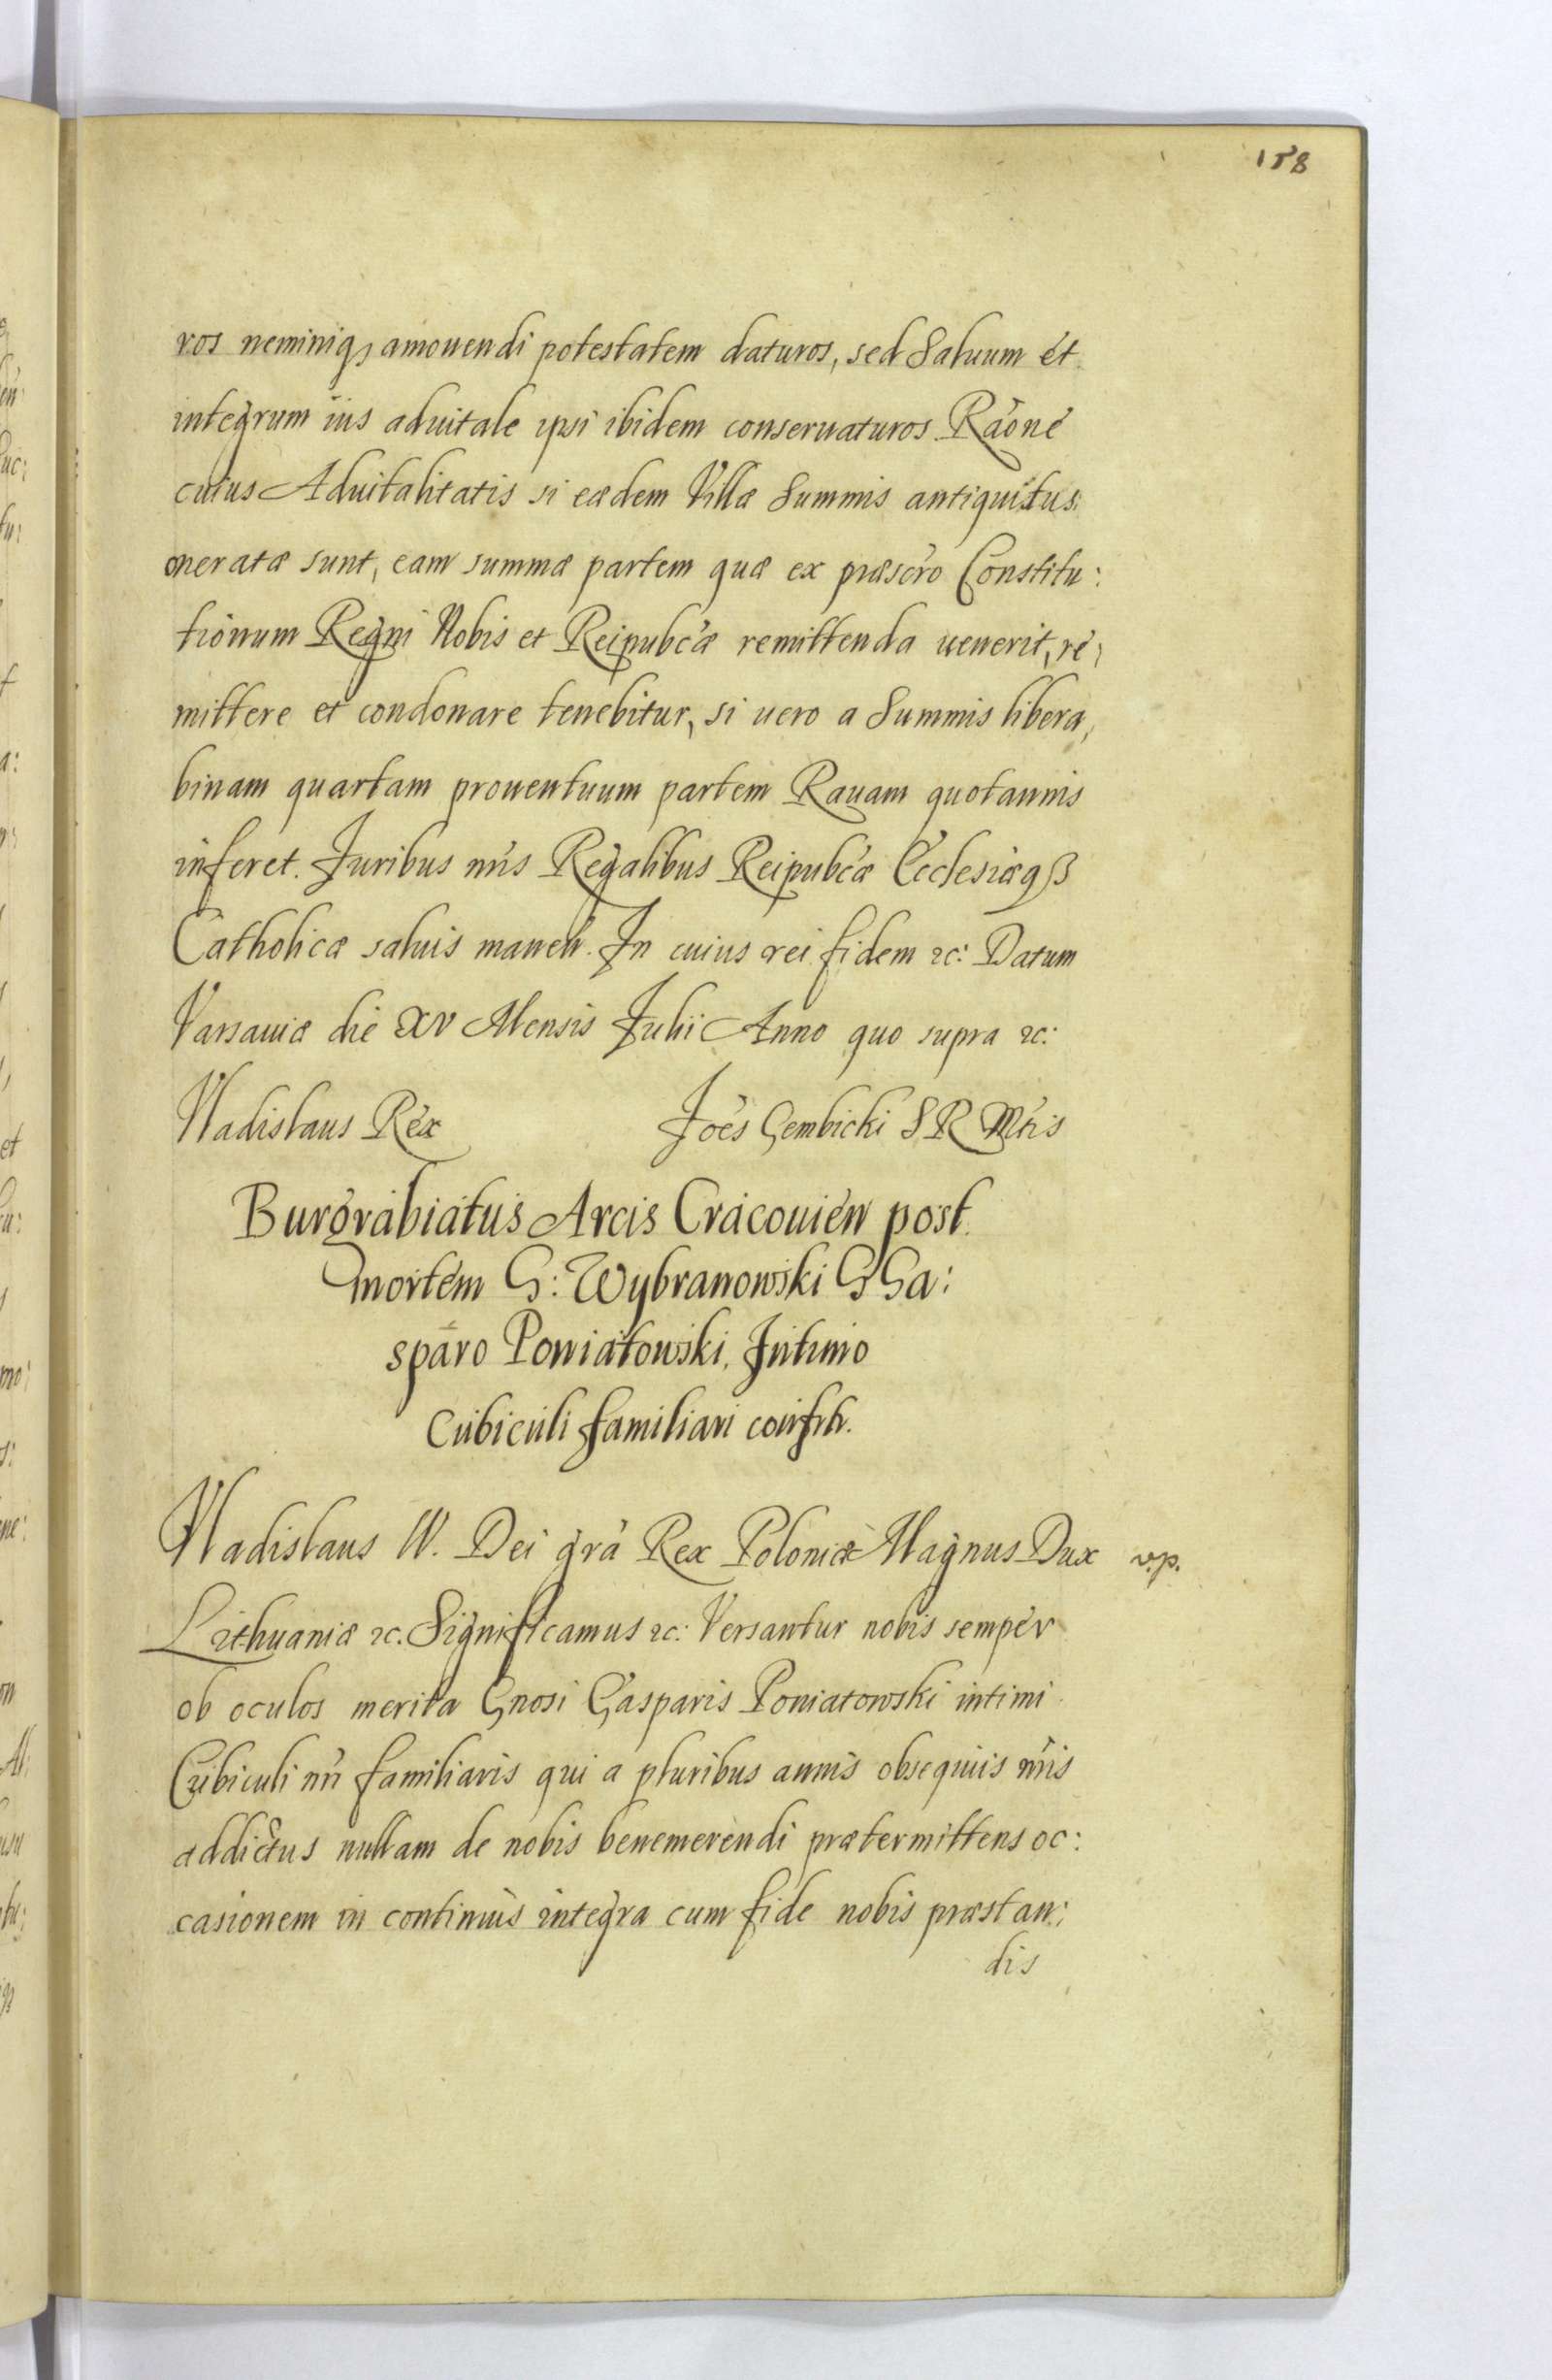 158
ros neminiq; amouendi potestatem daturos, sed Saluum et
integrum ius aduitale ipsi ibidem conseruaturos Raone
cuius Aduitalitatis si eædem Villæ Summis antiquitus
oneratæ sunt, eam summæ partem quæ ex præscro Constitu:
tionum Regni Nobis et Reipubcæ remittenda uenerit, re:
mittere et condonare tenebitur, si uero a Summis libera,
binam quartam prouentuum partem Rauam quotannis
inferet. Juribus nris Regalibus Reipubcæ Ecclesiæq;
Catholicæ saluis manen. In cuius rei fidem &c: Datum
Varsauiæ die XV Mensis Julii Anno quo supra &c:
Vladislaus Rex Joes Gembicki S R Mtis
Burgrabiatus Arcis Cracouien post
mortem G: Wybranowski G Ga:
sparo Poniatowski, Intimo
Cubiculi familiari confrtr.
Vladislaus IV. Dei gra Rex Poloniæ Magnus Dux v.p.
Lithuaniæ &c. Significamus &c: Versantur nobis semper
ob oculos merita Gnosi Gasparis Poniatowski intimi
Cubiculi nri familiaris qui a pluribus annis obsequiis nris
addictus nullam de nobis benemerendi prætermittens oc:
casionem in continuis integra cum fide nobis præstan:
dis